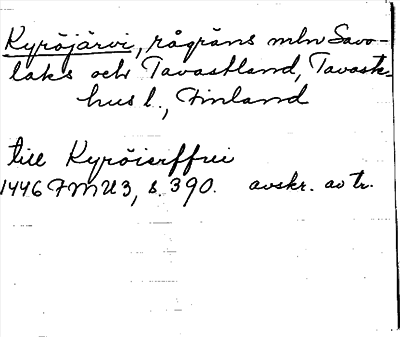 Kyröjärvi, rågräns mln Savo-
laks och Tavastland, Tavaste-
hus l., Finland
till Kyröierffui
1446 FMU 3, s. 390. avskr. av tr.